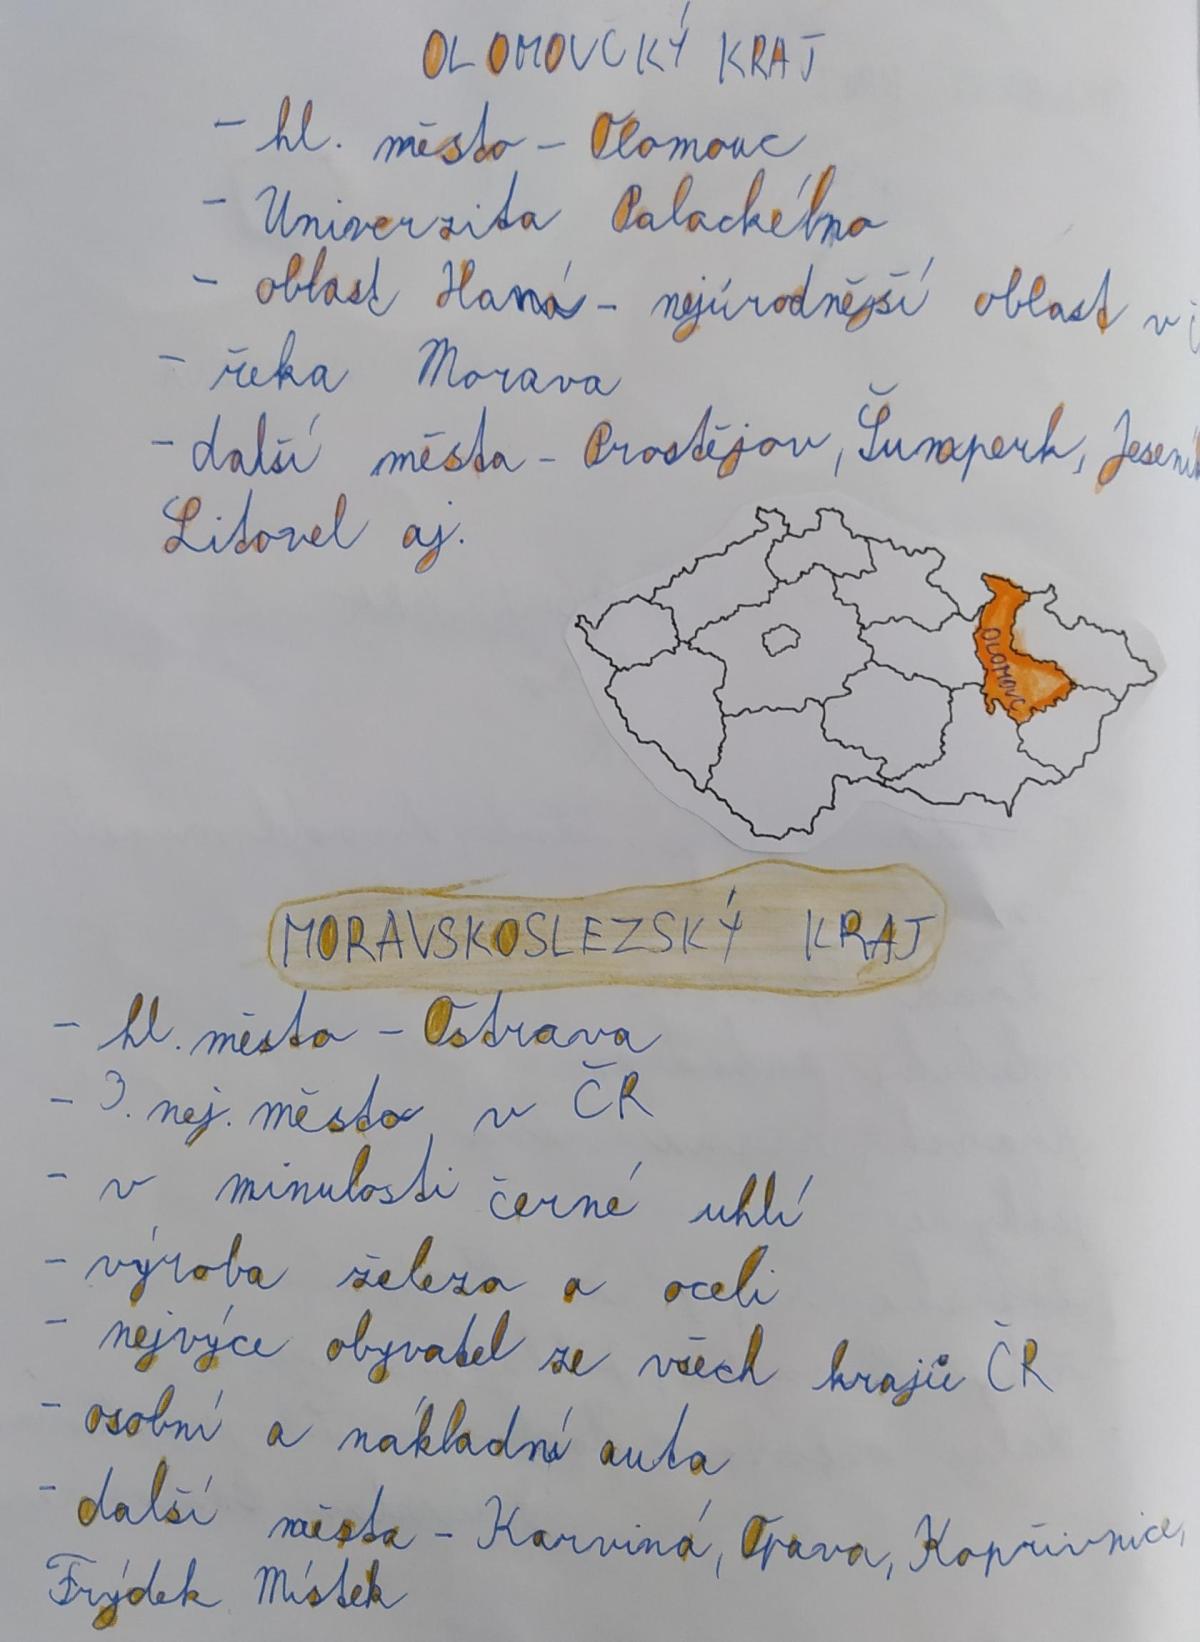 OLOMOUCKÝ KRAJ
- hl. město - Olomouc
- Univerzita Palackého
- oblast Haná - nejúrodnější oblast v
- řeka Morava
- další města - Prostějov, Šumperk, Jeseník
Litovel aj.
OLOMOUC
MORAVSKOSLEZSKÝ KRAJ
- hl. město - Ostrava
- 3. nej. město v ČR
- v minulosti černé uhlí
- výroba železa a oceli
- nejvýce obyvatel ze všech krajů ČR
- osobní a nákladní auta
- další města - Karviná, Opava, Kopřivnice,
Frýdek Místek